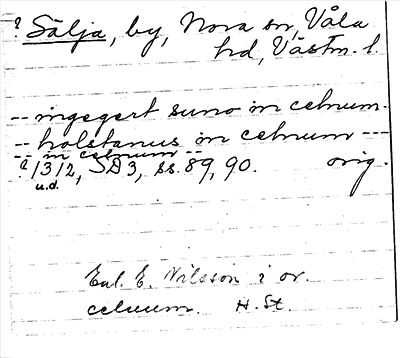 ? Sälja, by, Nora sn, Våla
hd, Västm. l.
-- ingegert suno in celnum -
-- holstanus in celnum ---
-- in celnum --
? 1312, SD3, ss. 89, 90. orig.
u.d.
Enl. E. Nilsson i or.
celuum. H. St.